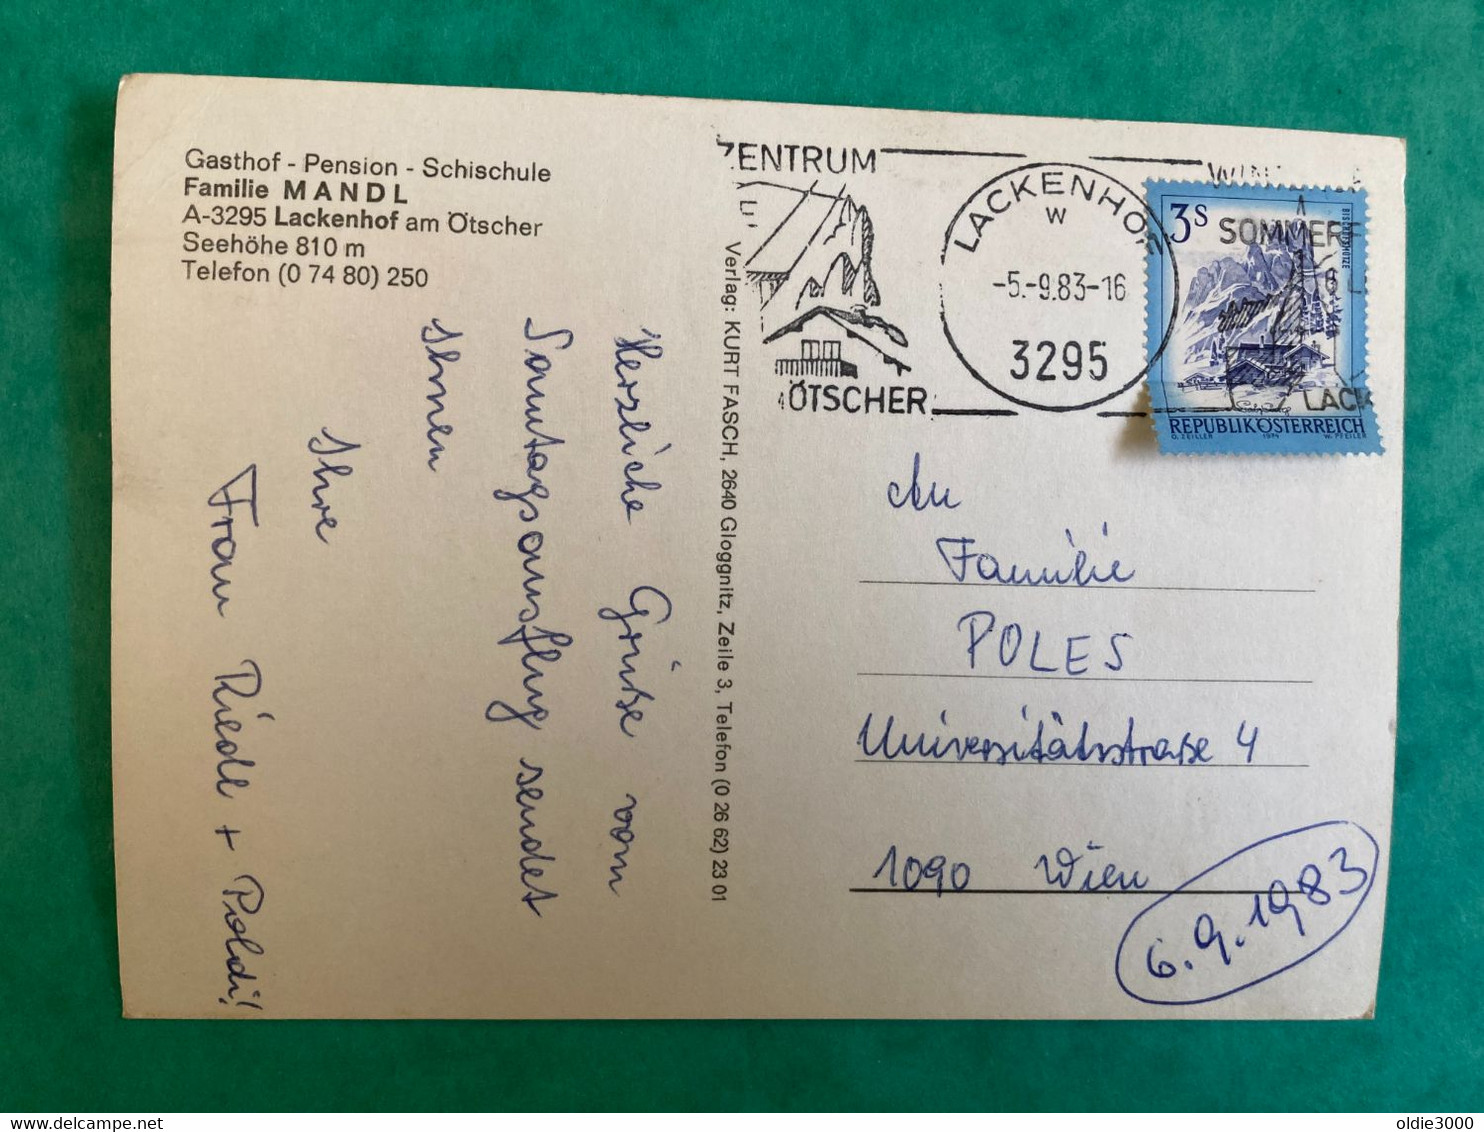 Gasthof - Pension - Schischule
Familie MANDL
A-3295 Lackenhof am Ötscher
Seehöhe 810 m
Telefon (0 74 80) 250
Herzliche Grüße vom
Sonntagsausflug sendet
Ihnen
Ihre
Frau Riedl + Poldi!
Verlag: KURT FASCH, 2640 Gloggnitz, Zeile 3, Telefon (0 26 62) 23 01
ZENTRUM
ÖTSCHER
LACKENHOF
w
-5.-9.83-16
3295
SOMMER
LACK
3s
BISCHOFSMÜTZE
REPUBLIK ÖSTERREICH
O. ZEILLER 1974 W. PFEILER
An
Familie
POLES
Universitätsstraße 4
1090 Wien
6.9.1983
oldie3000